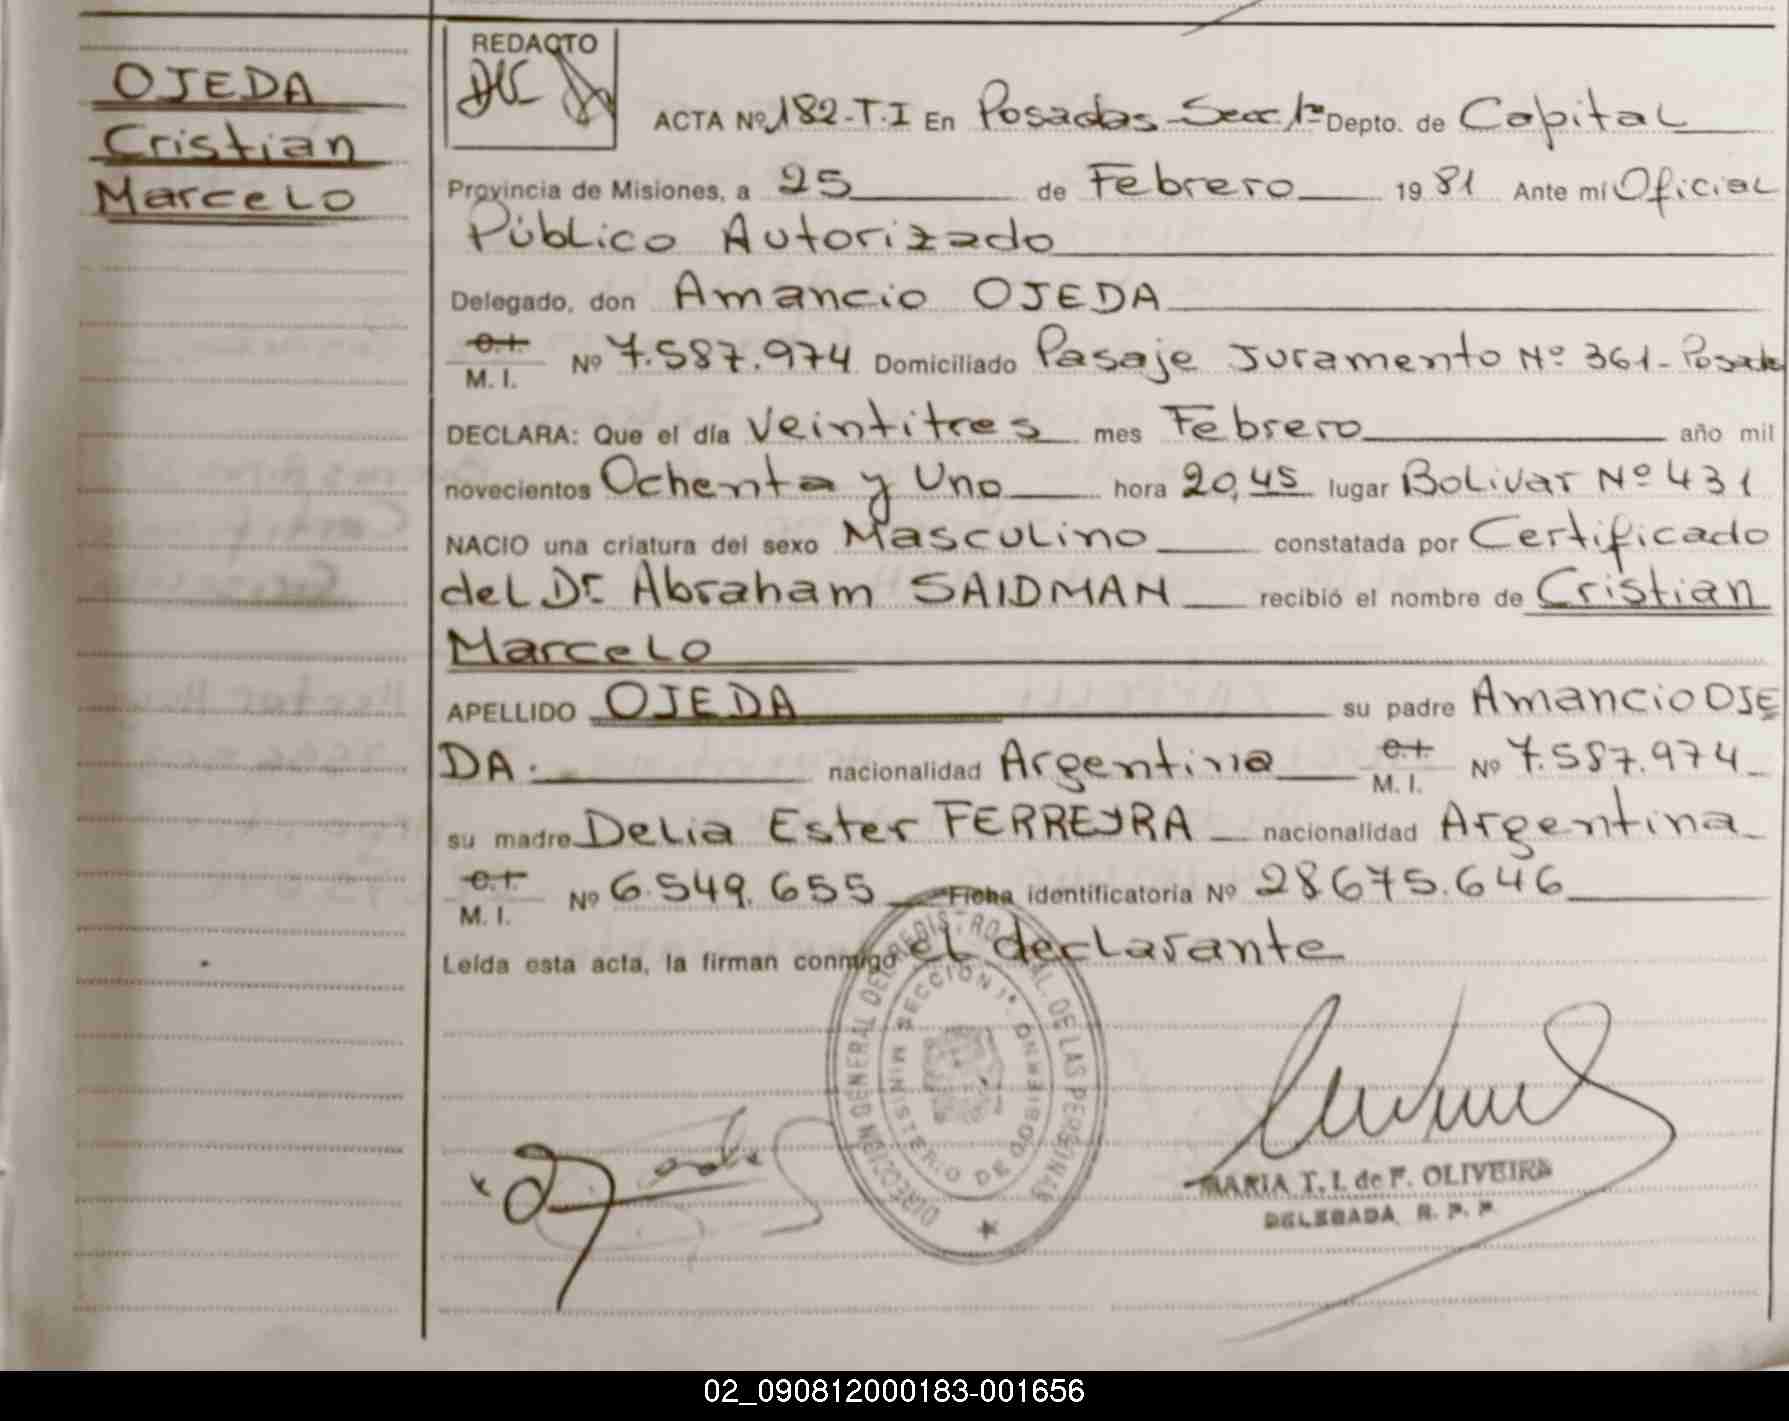 OJEDA
Cristian
Marcelo
REDACTO
ACTA Nº 182-T.I En Posadas-Secc 1ª Depto. de Capital
Provincia de Misiones, a 25 de Febrero 1981 Ante mí Oficial
Público Autorizado
Delegado, don Amancio OJEDA
C.I. M.I. Nº 7.587.974 Domiciliado Pasaje Juramento Nº 361-Posadas
DECLARA: Que el día Veintitres mes Febrero año mil
novecientos Ochenta y Uno hora 20,45 lugar Bolivar Nº 431
NACIO una criatura del sexo Masculino constatada por Certificado
del Dr. Abraham SAIDMAN recibió el nombre de Cristian
Marcelo
APELLIDO OJEDA su padre Amancio OJE
DA. nacionalidad Argentina C.I. M.I. Nº 7.587.974
su madre Delia Ester FERREYRA nacionalidad Argentina
C.I. M.I. Nº 6.549.655 Ficha identificatoria Nº 28675.646
Leída esta acta, la firman conmigo el declarante
DIRECCION GENERAL DE REGIST. PROVINCIAL DE LAS PERSONAS
SECCION 1ª
MINISTERIO DE GOBIERNO
MARIA T. I. de F. OLIVEIRA
DELEGADA R. P. P.
02_090812000183-001656